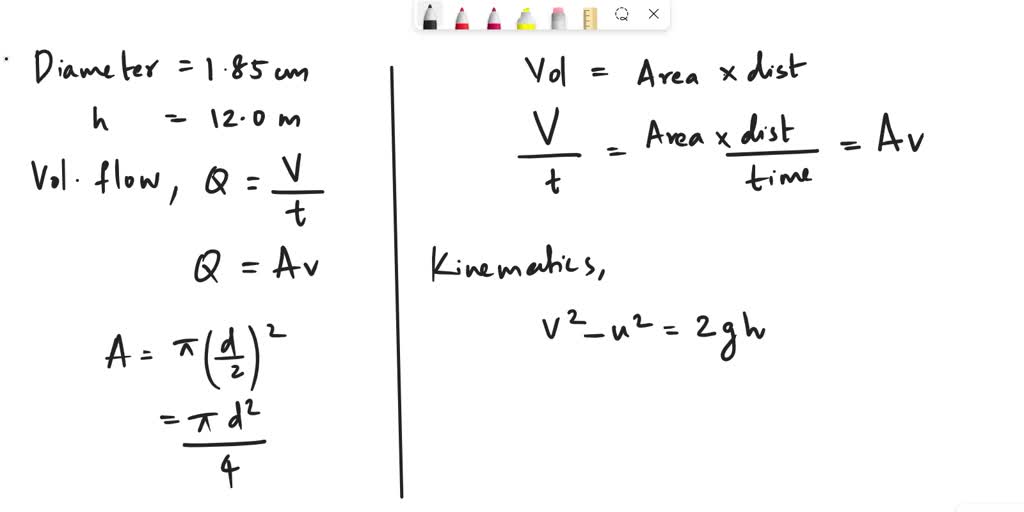 Diameter = 1.85 cm
h = 12.0 m
Vol. flow, Q = V/t
Q = Av
A = π(d/2)²
= πd²/4
Vol = Area × dist
V/t = Area × dist/time = Av
Kinematics,
v² - u² = 2gh